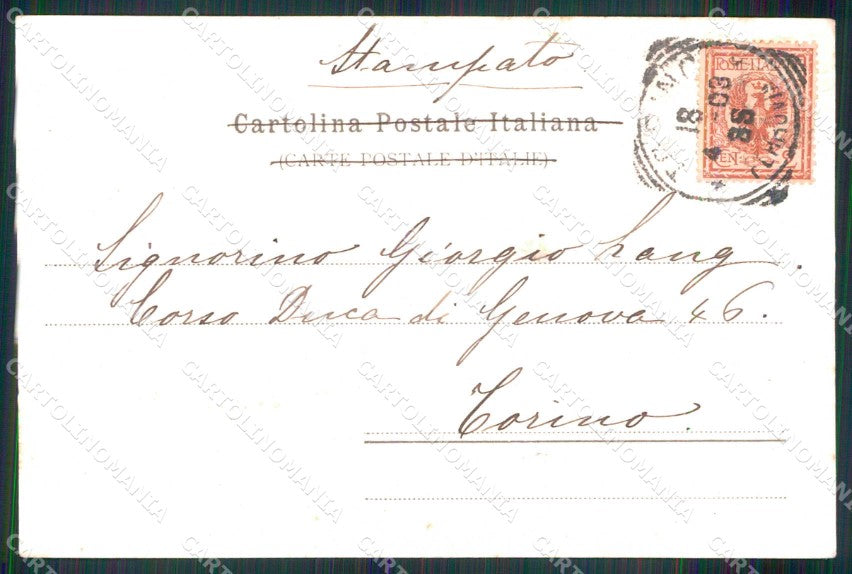 Stampato
Cartolina Postale Italiana
(CARTE POSTALE D'ITALIE)
Signorino Giorgio Lang.
Corso Duca di Genova 46.
Torino.
TORINO
18
4-03
8S
POSTE
CARTOLINOMANIA